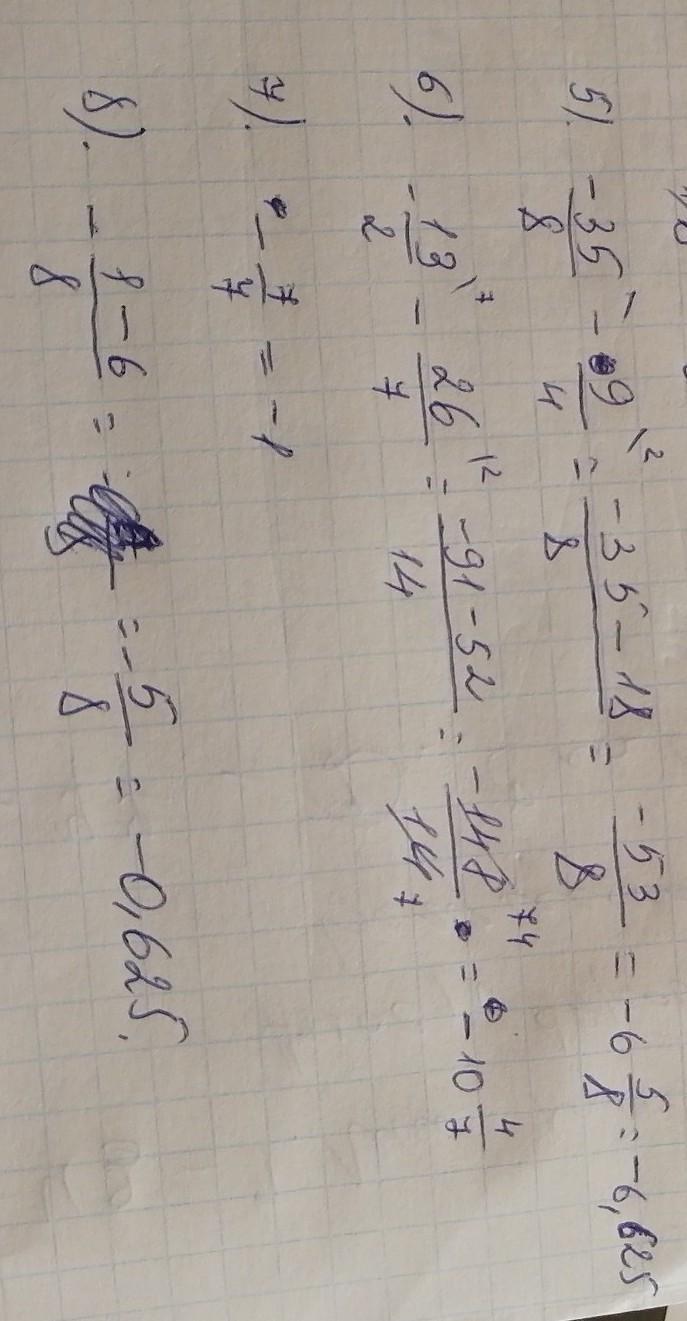 5). -35/8 \ - 9/4 \2 = -35-18/8 = -53/8 = -6 5/8 = -6,625
6). -13/2 \7 - 26/7 \2 = -91-52/14 = -148/14 74/7 = -10 4/7
7). -7/7 = -1
8). - 1-6/8 = = -5/8 = -0,625.